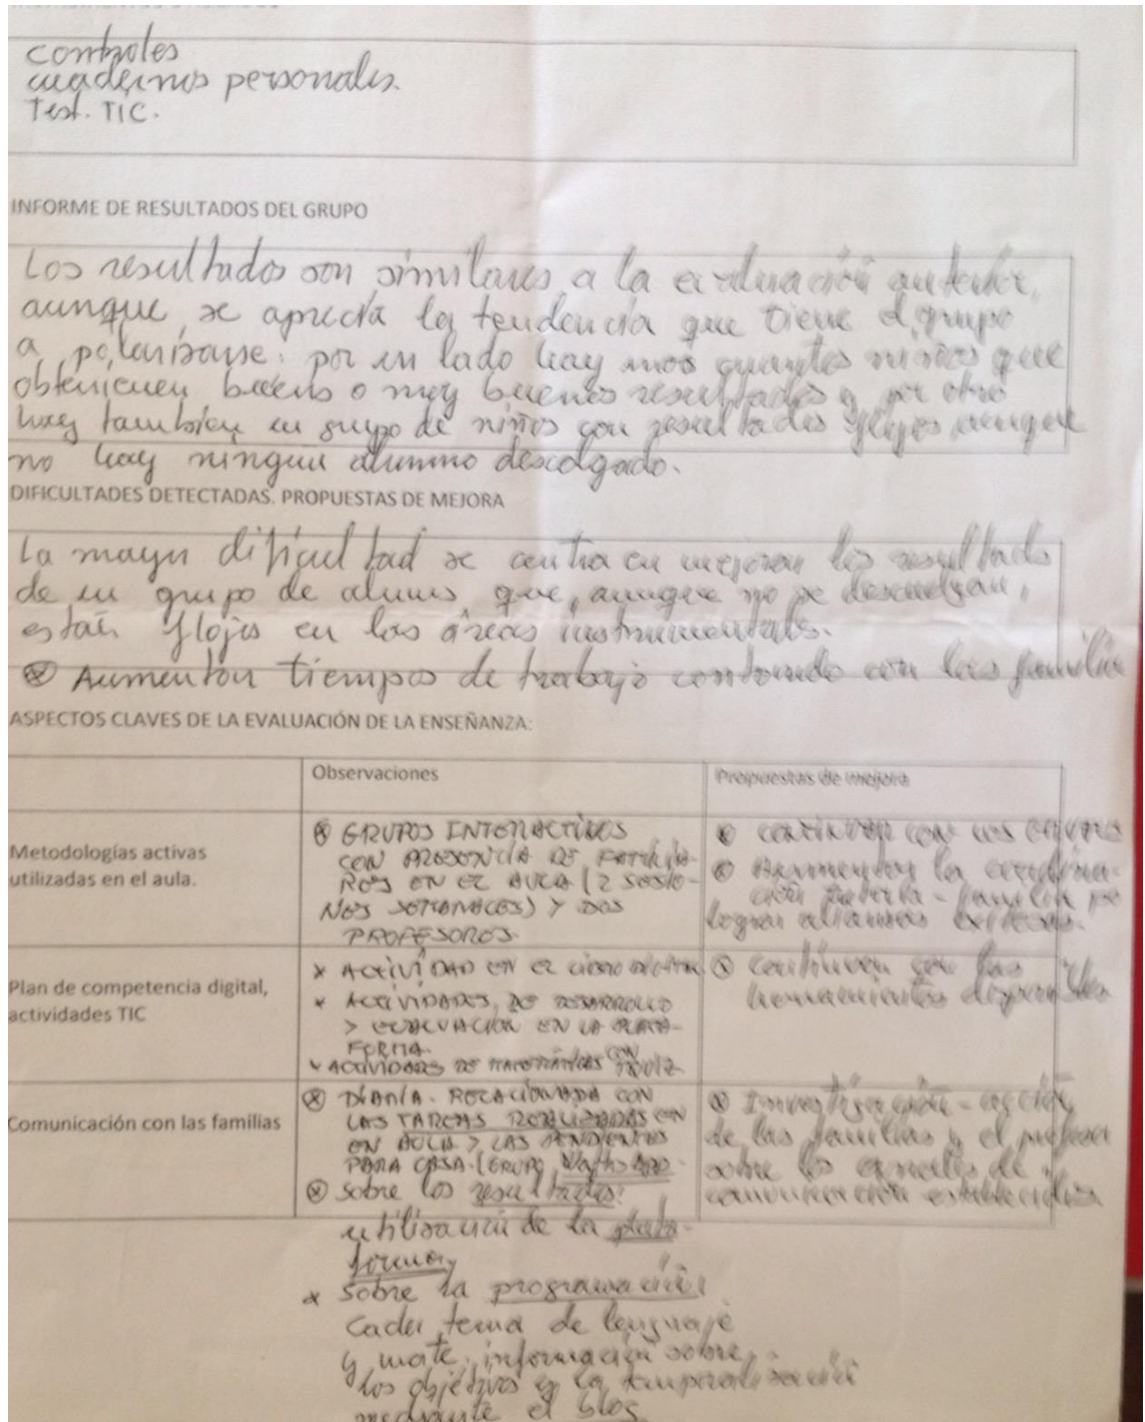 controles
cuadernos personales.
Test. TIC.
INFORME DE RESULTADOS DEL GRUPO
Los resultados son similares a la evaluación anterior,
aunque se aprecia la tendencia que tiene el grupo
a polarizarse: por un lado hay unos cuantos niños que
obtienen buenos o muy buenos resultados y por otro
hay también un grupo de niños con resultados flojos, aunque
no hay ningún alumno descolgado.
DIFICULTADES DETECTADAS. PROPUESTAS DE MEJORA
La mayor dificultad se centra en mejorar los resultado
de un grupo de alumnos que, aunque no se descuelgan,
están flojos en las áreas instrumentales.
Aumentar tiempos de trabajo contando con las familia
ASPECTOS CLAVES DE LA EVALUACIÓN DE LA ENSEÑANZA:
Observaciones
Propuestas de mejora
Metodologías activas
utilizadas en el aula.
GRUPOS INTERACTIVOS
CON PRESENCIA DE FAMILIA-
RES EN EL AULA (2 SESIO-
NES SEMANALES) Y DOS
PROFESORES.
CONTINUAR CON LOS GRUPOS
Aumentar la coordina-
ción familia
lograr alianzas exitosas.
Plan de competencia digital,
actividades TIC
x ACTIVIDAD EN EL LIBRO DIGITAL
x ACTIVIDADES DE DESARROLLO
Y EVALUACIÓN EN LA PLATA-
FORMA.
ACTIVIDADES DE MATEMÁTICAS EN
Continuar con las
herramientas disponibles
Comunicación con las familias
DIARIA. RELACIONADA CON
LAS TAREAS REALIZADAS EN
EN AULA Y LAS PENDIENTES
PARA CASA. (GRUPO WATHSAPP.
Sobre los resultados:
utilización de la plata-
forma,
x Sobre la programación:
Cada tema de lenguaje
y mate, información sobre
los objetivos y la temporalización
mediante el blog
Investigación-acción
de las familias y el profesor
sobre los canales de
comunicación establecidos